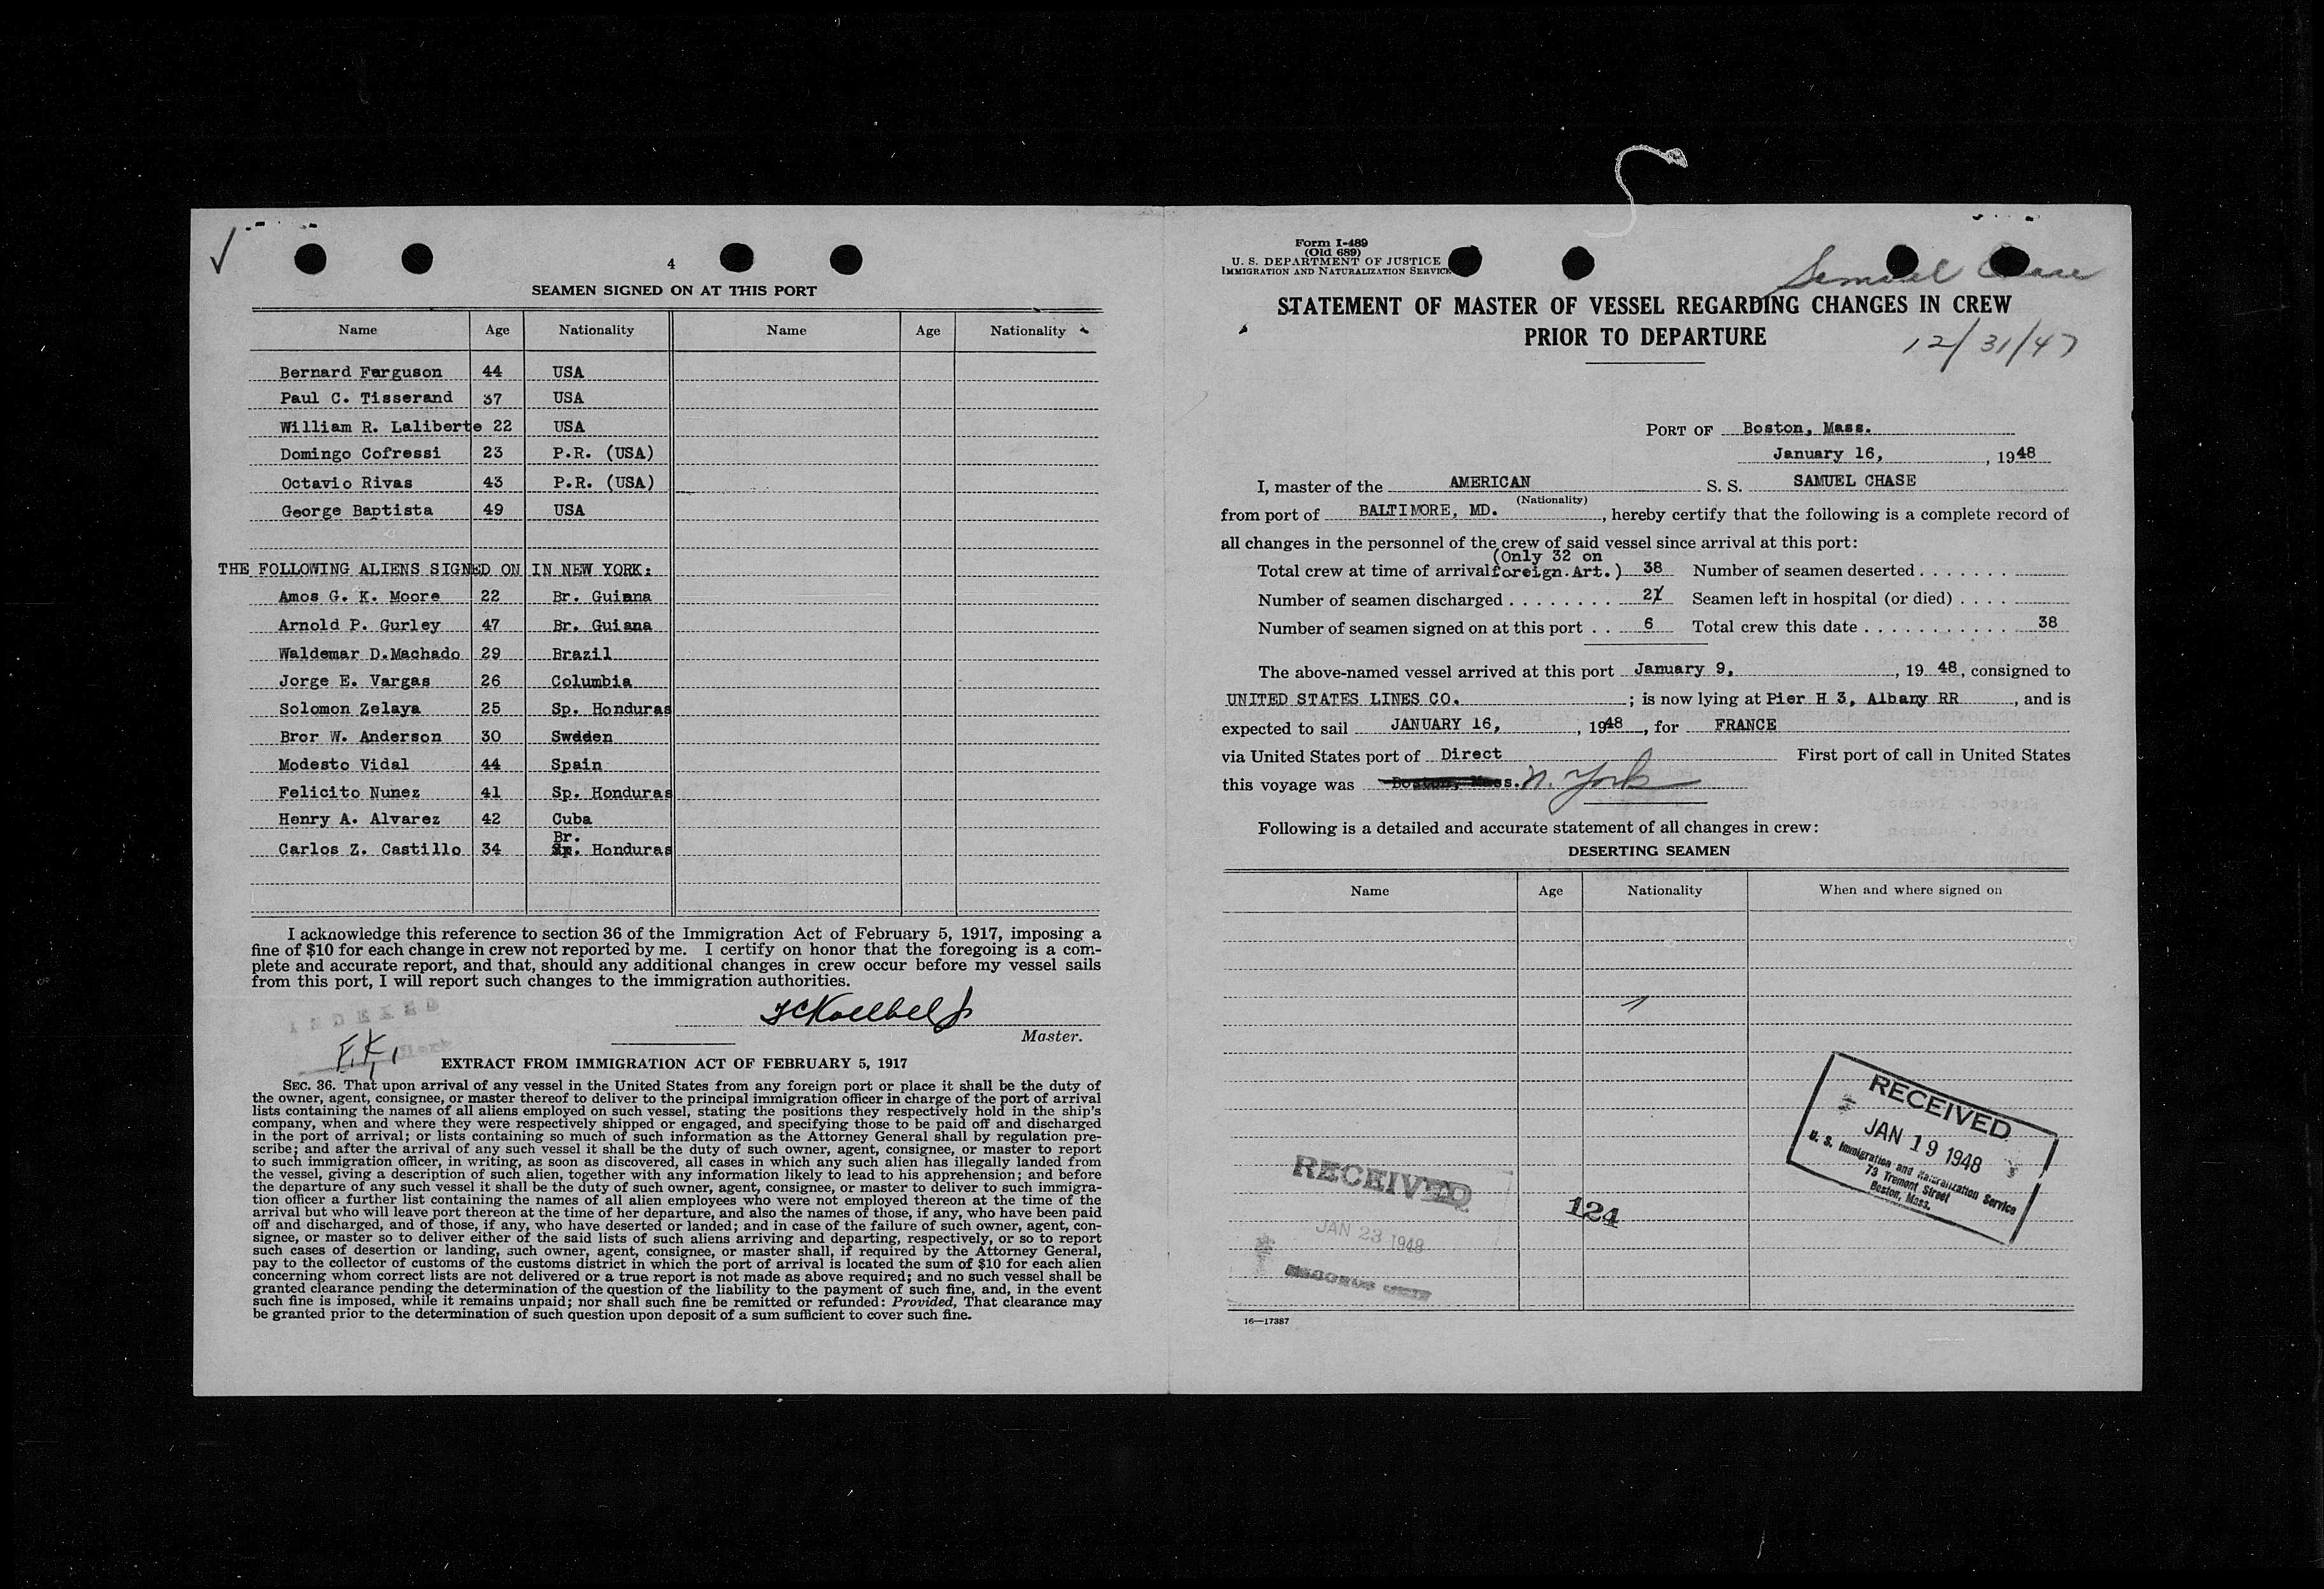 4
SEAMEN SIGNED ON AT THIS PORT
Name Age Nationality Name Age Nationality
Bernard Ferguson 44 USA
Paul C. Tisserand 37 USA
William R. Laliberte 22 USA
Domingo Cofressi 23 P.R. (USA)
Octavio Rivas 43 P.R. (USA)
George Baptista 49 USA
THE FOLLOWING ALIENS SIGNED ON IN NEW YORK:
Amos G. K. Moore 22 Br. Guiana
Arnold P. Gurley 47 Br. Guiana
Waldemar D.Machado 29 Brazil
Jorge E. Vargas 26 Columbia
Solomon Zelaya 25 Sp. Honduras
Bror W. Anderson 30 Sweden
Modesto Vidal 44 Spain
Felicito Nunez 41 Sp. Honduras
Henry A. Alvarez 42 Cuba
Br.
Carlos Z. Castillo 34 Sp. Honduras
I acknowledge this reference to section 36 of the Immigration Act of February 5, 1917, imposing a
fine of $10 for each change in crew not reported by me. I certify on honor that the foregoing is a com-
plete and accurate report, and that, should any additional changes in crew occur before my vessel sails
from this port, I will report such changes to the immigration authorities.
INDEXED
Master.
F.K.
EXTRACT FROM IMMIGRATION ACT OF FEBRUARY 5, 1917
SEC. 36. That upon arrival of any vessel in the United States from any foreign port or place it shall be the duty of
the owner, agent, consignee, or master thereof to deliver to the principal immigration officer in charge of the port of arrival
lists containing the names of all aliens employed on such vessel, stating the positions they respectively hold in the ship's
company, when and where they were respectively shipped or engaged, and specifying those to be paid off and discharged
in the port of arrival; or lists containing so much of such information as the Attorney General shall by regulation pre-
scribe; and after the arrival of any such vessel it shall be the duty of such owner, agent, consignee, or master to report
to such immigration officer, in writing, as soon as discovered, all cases in which any such alien has illegally landed from
the vessel, giving a description of such alien, together with any information likely to lead to his apprehension; and before
the departure of any such vessel it shall be the duty of such owner, agent, consignee, or master to deliver to such immigra-
tion officer a further list containing the names of all alien employees who were not employed thereon at the time of the
arrival but who will leave port thereon at the time of her departure, and also the names of those, if any, who have been paid
off and discharged, and of those, if any, who have deserted or landed; and in case of the failure of such owner, agent, con-
signee, or master so to deliver either of the said lists of such aliens arriving and departing, respectively, or so to report
such cases of desertion or landing, such owner, agent, consignee, or master shall, if required by the Attorney General,
pay to the collector of customs of the customs district in which the port of arrival is located the sum of $10 for each alien
concerning whom correct lists are not delivered or a true report is not made as above required; and no such vessel shall be
granted clearance pending the determination of the question of the liability to the payment of such fine, and, in the event
such fine is imposed, while it remains unpaid; nor shall such fine be remitted or refunded: Provided, That clearance may
be granted prior to the determination of such question upon deposit of a sum sufficient to cover such fine.
Form I-489
(Old 689)
U. S. DEPARTMENT OF JUSTICE
IMMIGRATION AND NATURALIZATION SERVICE
Samuel Chase
STATEMENT OF MASTER OF VESSEL REGARDING CHANGES IN CREW
PRIOR TO DEPARTURE
12/31/47
PORT OF Boston, Mass.
January 16, , 1948
I, master of the AMERICAN S. S. SAMUEL CHASE
(Nationality)
from port of BALTIMORE, MD. , hereby certify that the following is a complete record of
all changes in the personnel of the crew of said vessel since arrival at this port:
(Only 32 on
Total crew at time of arrival foreign.Art.) 38 Number of seamen deserted . . . . . . .
Number of seamen discharged . . . . . . . . 2 Seamen left in hospital (or died) . . . .
Number of seamen signed on at this port . . 6 Total crew this date . . . . . . . . . . . 38
The above-named vessel arrived at this port January 9, , 19 48, consigned to
UNITED STATES LINES CO. ; is now lying at Pier H 3, Albany RR , and is
expected to sail JANUARY 16, , 1948, for FRANCE
via United States port of Direct First port of call in United States
this voyage was Boston, Mass. N. York
Following is a detailed and accurate statement of all changes in crew:
DESERTING SEAMEN
Name Age Nationality When and where signed on
RECEIVED
JAN 19 1948
U. S. Immigration and Naturalization Service
73 Tremont Street
Boston, Mass.
RECEIVED
124
JAN 23 1948
16—17387